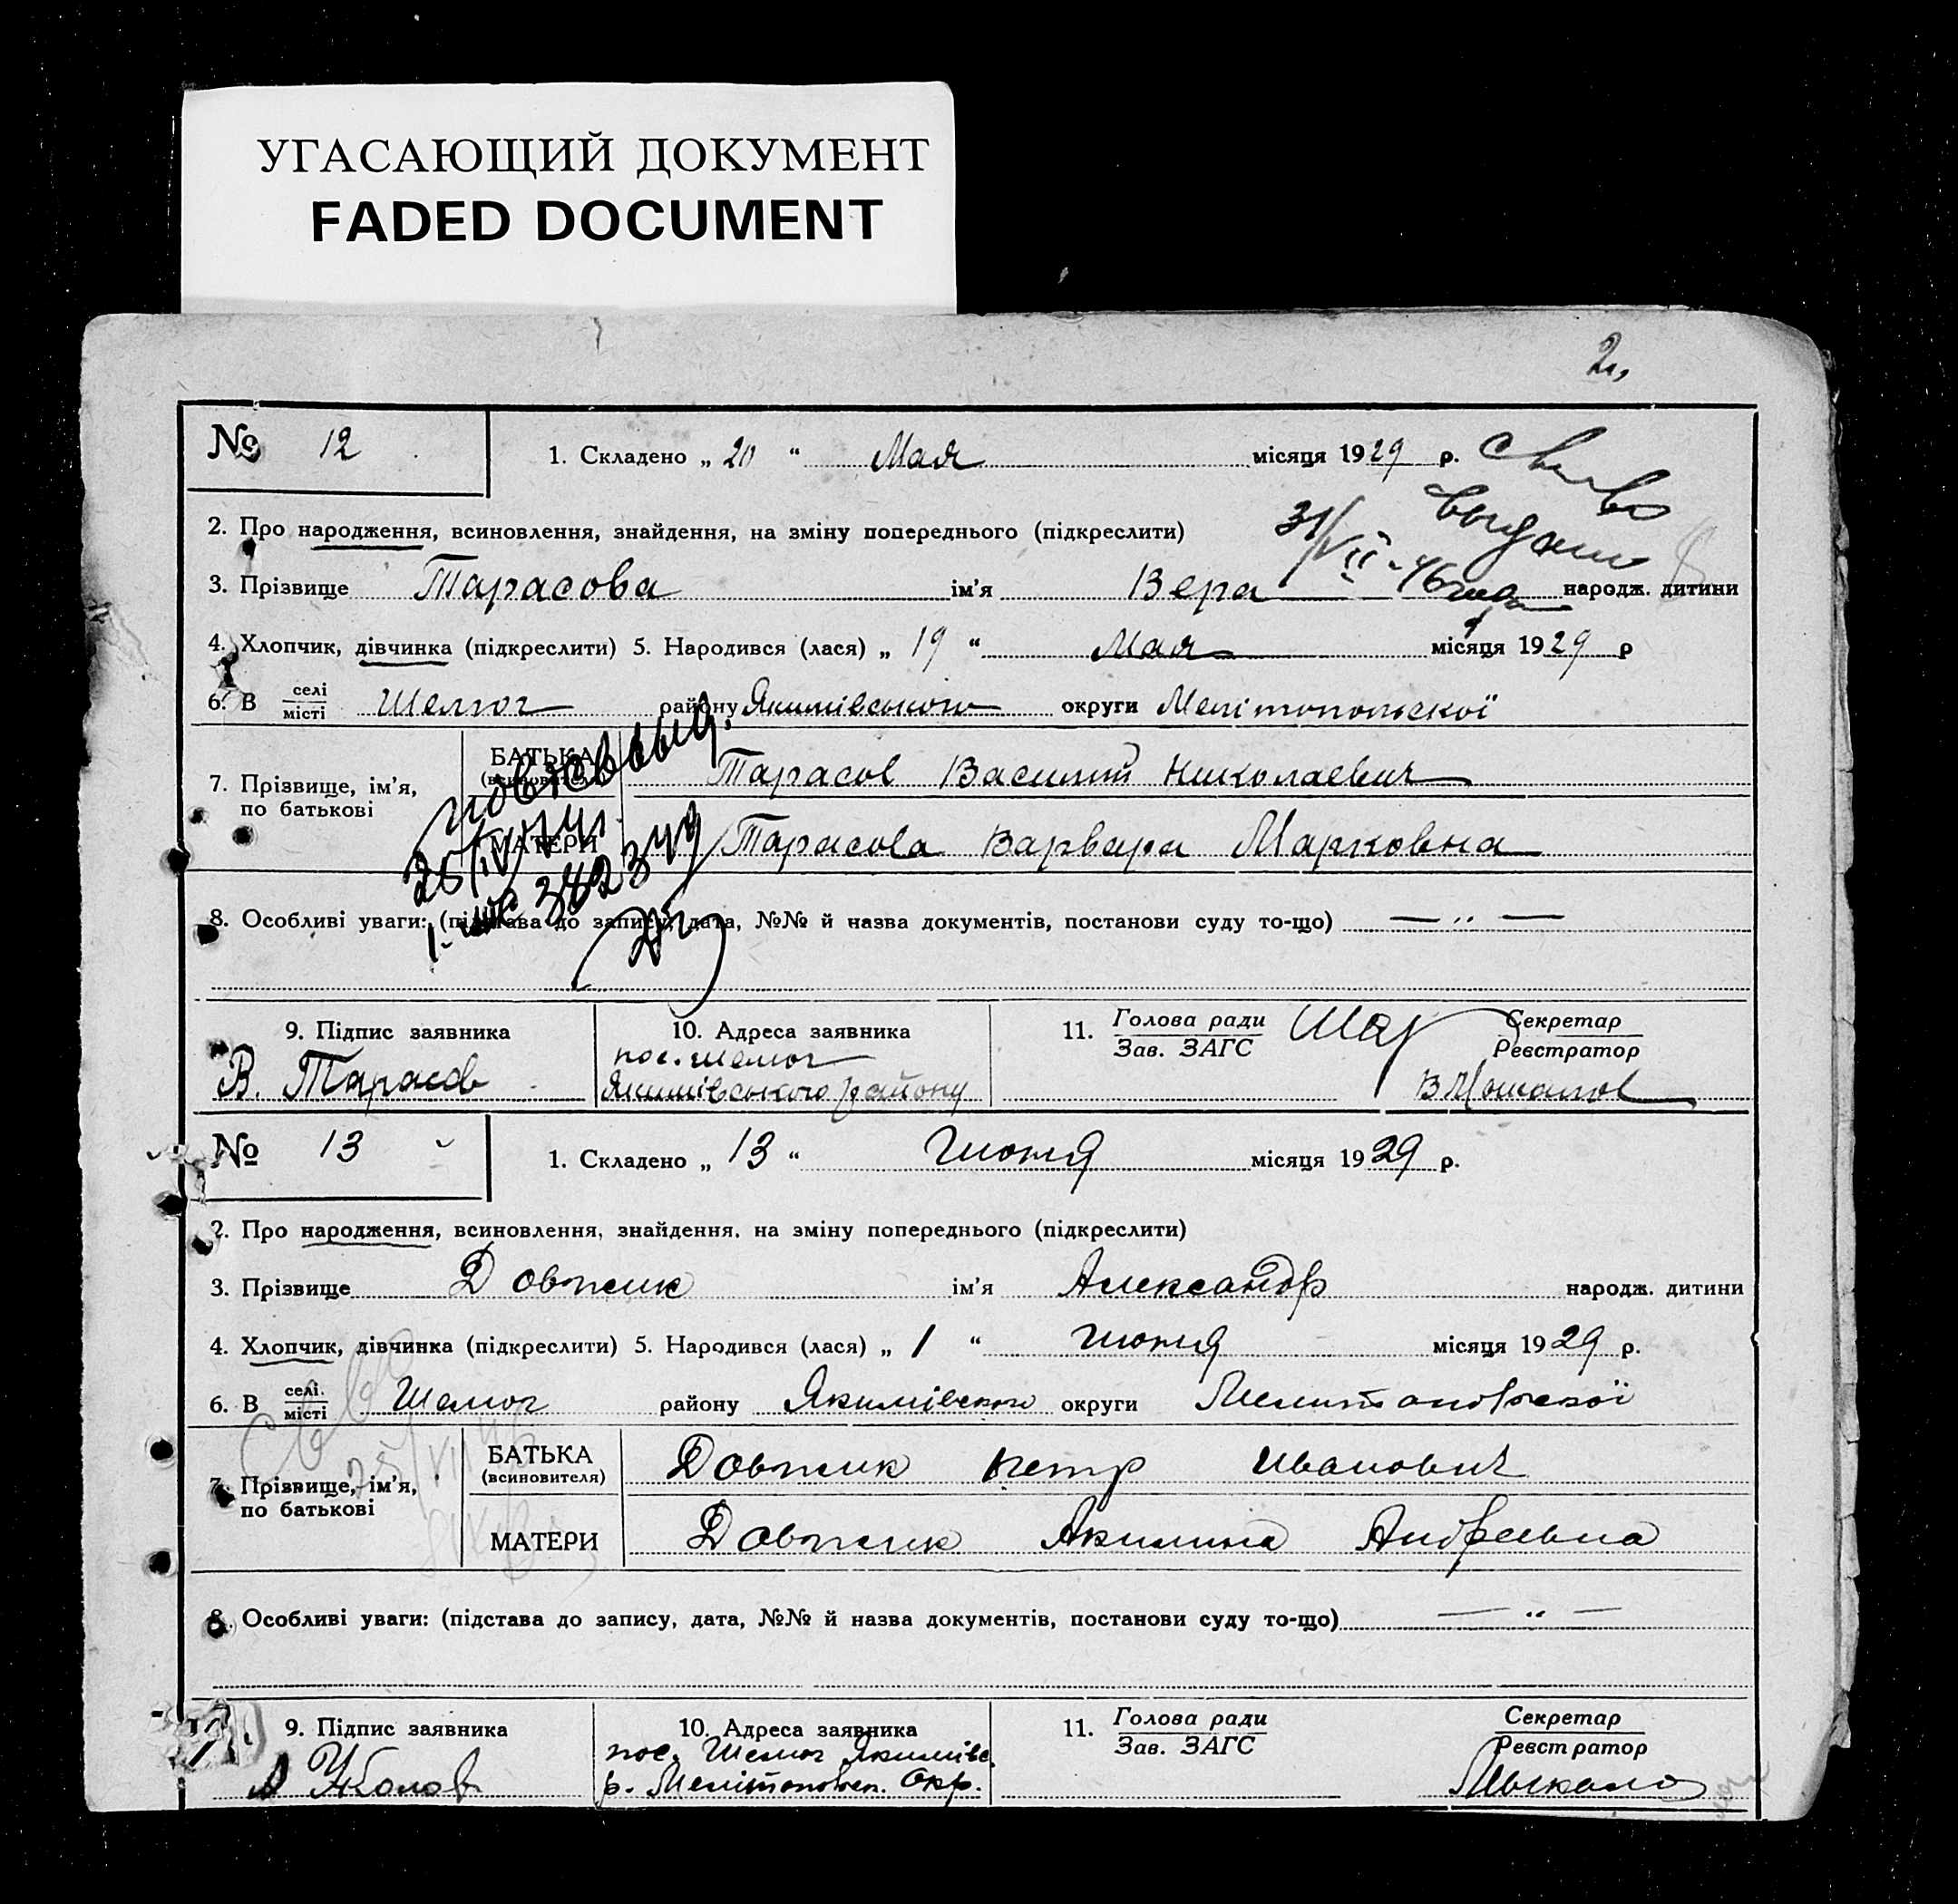 УГАСАЮЩИЙ ДОКУМЕНТ
FADED DOCUMENT
2.,
№ 12
1. Складено „ 20 “ Мая місяця 1929 р.
2. Про народження, всиновлення, знайдення, на зміну попереднього (підкреслити)
выдано
31/VII-46
3. Прізвище Тарасова ім’я Вера народж. дитини
4. Хлопчик, дівчинка (підкреслити) 5. Народився (лася) „ 19 “ Мая місяця 1929 р
6. В селі місті Шелюг району Якимівського округи Мелітопольскої
7. Прізвище, ім’я, по батькові
БАТЬКА (всиновителя) Тарасов Василий Николаевич
МАТЕРИ Тарасова Варвара Марковна
повт выд.
382379
8. Особливі уваги: (підстава до запису, дата, №№ й назва документів, постанови суду то-що) — ·· —
9. Підпис заявника
В. Тарасов
10. Адреса заявника
пос. Шелюг
Якимівського району
11. Голова ради
Зав. ЗАГС
Секретар
Реєстратор
№ 13
1. Складено „ 13 “ Июня місяця 1929 р.
2. Про народження, всиновлення, знайдення, на зміну попереднього (підкреслити)
3. Прізвище Довжик ім’я Александр народж. дитини
4. Хлопчик, дівчинка (підкреслити) 5. Народився (лася) „ 1 “ Июня місяця 1929 р.
6. В селі місті Шелюг району Якимівского округи Мелитопольскої
7. Прізвище, ім’я, по батькові
БАТЬКА (всиновителя) Довжик Петр Иванович
МАТЕРИ Довжик Акилина Андреевна
8. Особливі уваги: (підстава до запису, дата, №№ й назва документів, постанови суду то-що) — ·· —
9. Підпис заявника
10. Адреса заявника
пос. Шелюг Якимівс.
р. Мелітопольск. Окр.
11. Голова ради
Зав. ЗАГС
Секретар
Реєстратор